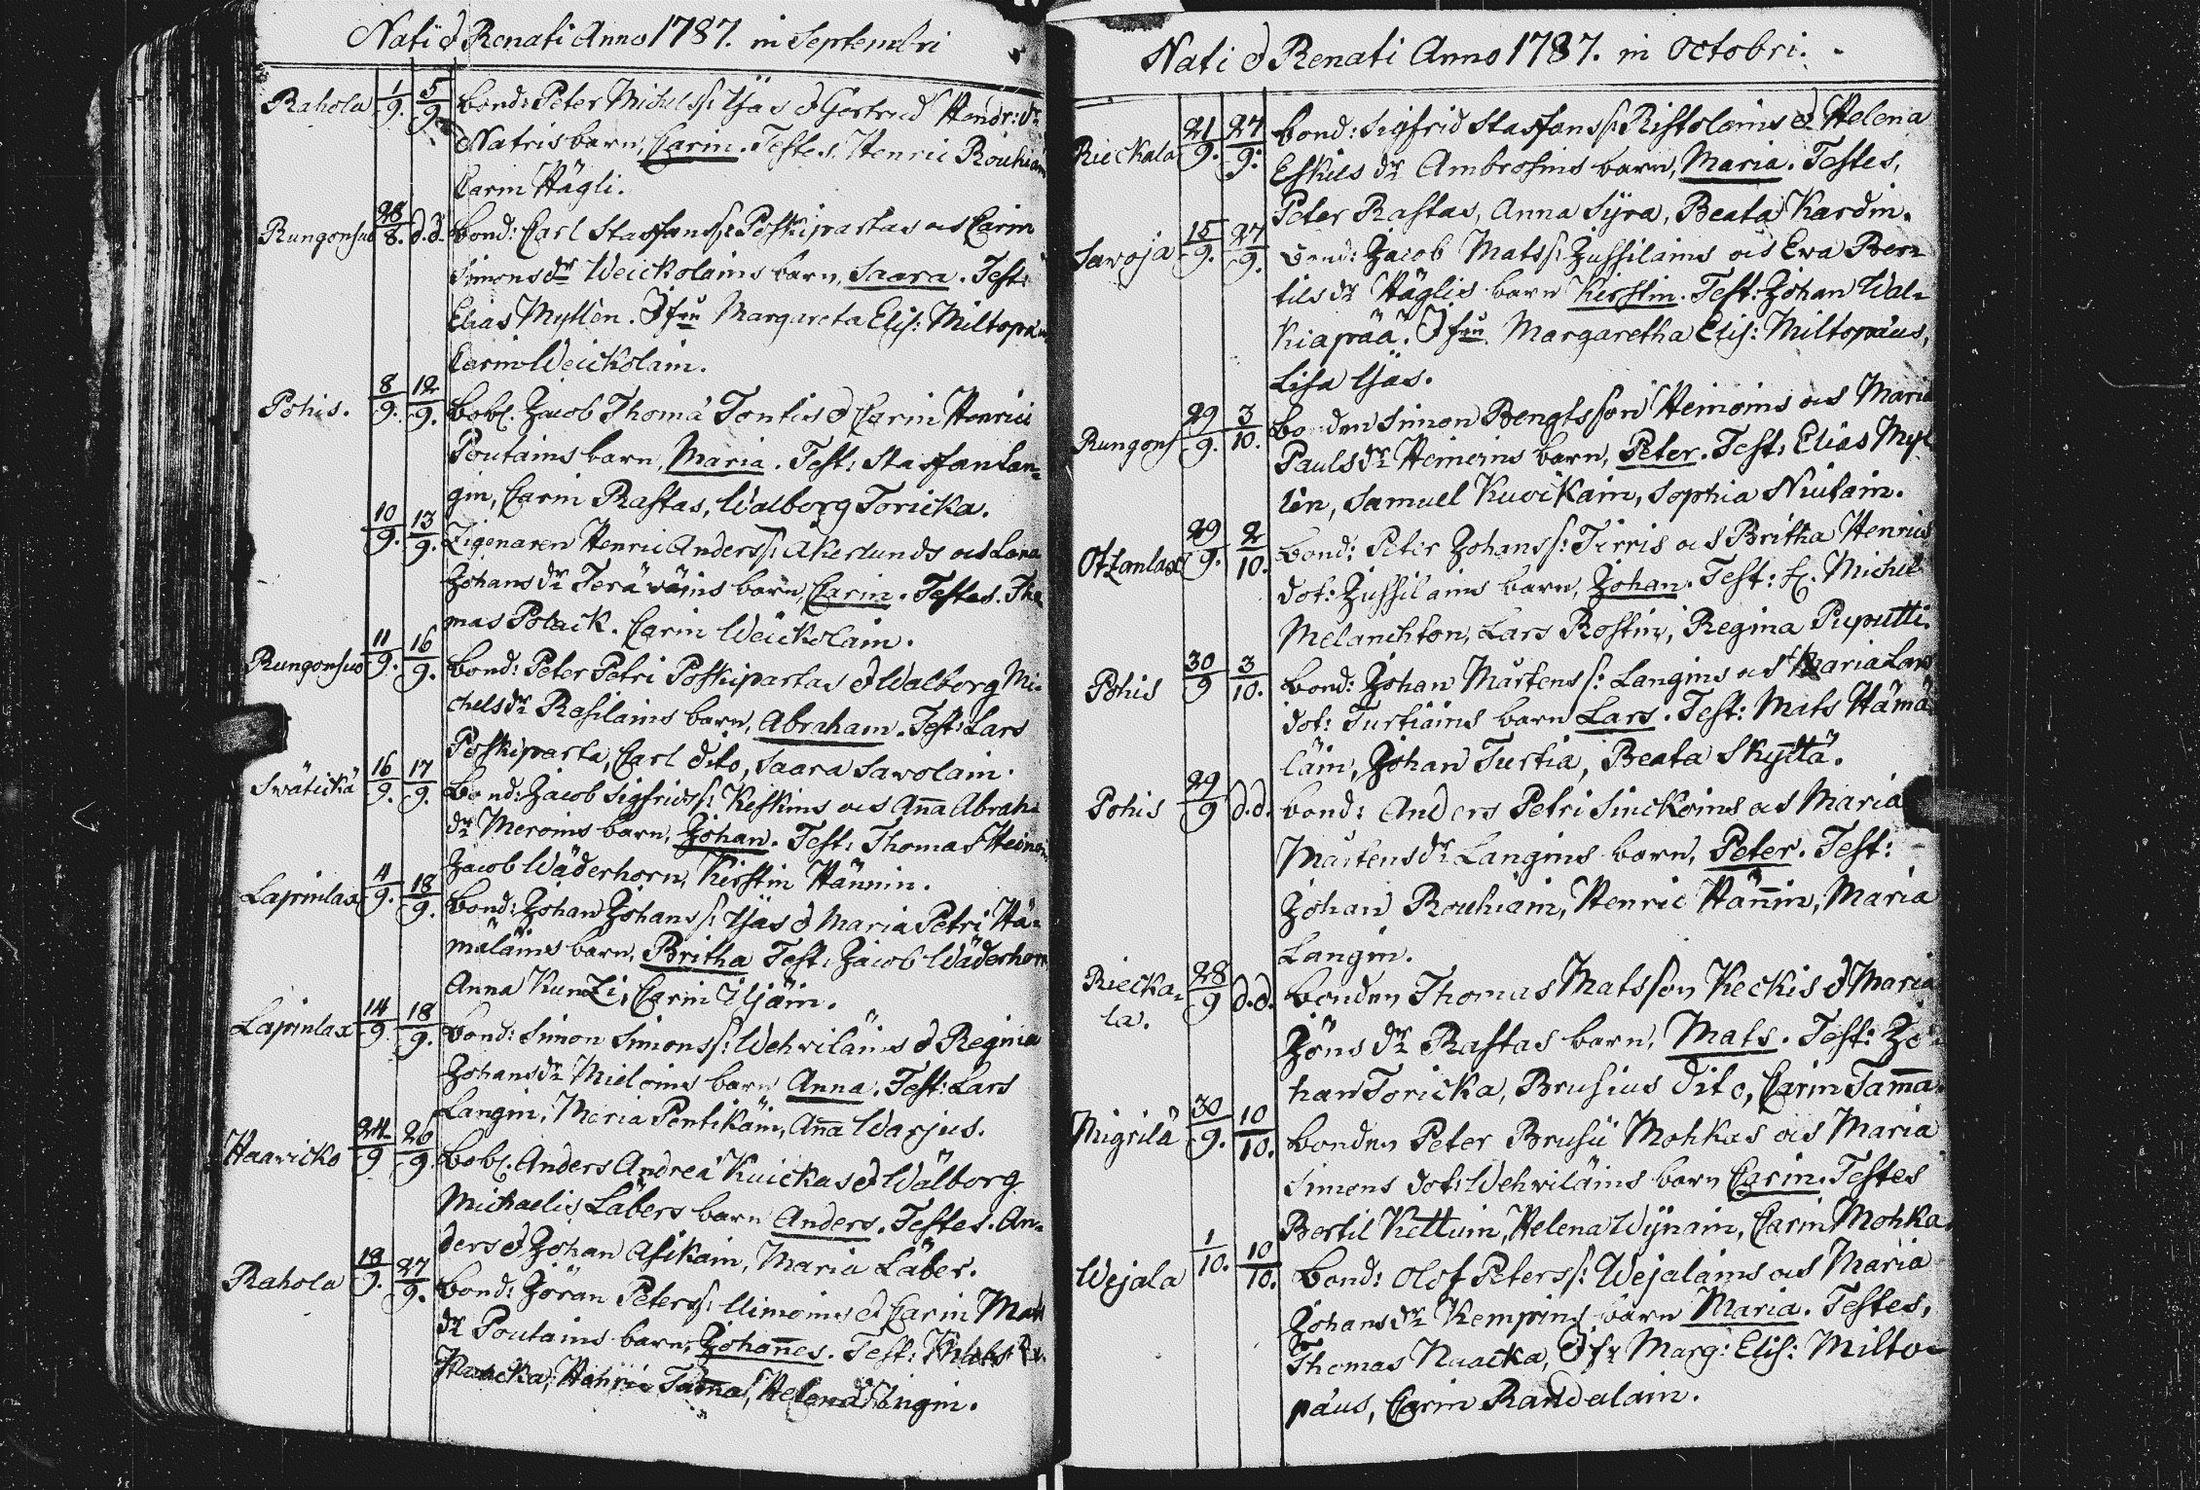 Nati & Renati Anno 1787. in Septembri
Rahola 1/9. 5/9. bond: Peter Michelss: Ijäs & Gertrud Hendr: dr
Natris barn, Carin. Testes, Henric Rouhiain
Carin Hägli.
Rungonsuo 28/8. d.d. bond: Carl Staffanss: Poskipartas och Carin
Simons dr Weickolains barn, Saara. Test:
Elias Myllen. Jfru Margareta Elis: Miltopæus
Carin Weickolain.
Pohis. 8/9. 12/9. bobl. Jacob Thomæ Tontis & Carin Henrici
Poutains barn, Maria. Test: Staffan Lan-
gin, Carin Rastas, Walborg Toricka.
10/9. 13/9. Zigenaren Henric Anderss: Åkerlunds och Lena
Johans dr Teräwäins barn, Carin. Testes. Tho
mas Polack. Carin Weickolain.
Rungonsuo 11/9. 16/9. bond: Peter Petri Poskipartas & Walborg Mi-
chels dr Rasilains barn, Abraham. Test: Lars
Poskiparta, Carl dito, Saara Sawolain.
Swätickä 16/9. 17/9. bond: Jacob Sigfridss: Keskins och Anna Abrah:
dr Meroins barn, Johan. Test: Thomas Heinoin
Jacob Wäderhorn, Kirstin Hännin.
Lapinlax 4/9. 18/9. bond: Johan Johanss: Ijäs & Maria Petri Hä-
mäläins barn, Britha Test: Jacob Wäderhorn
Anna Kunzi, Carin Iljäin.
Lapinlax 14/9. 18/9. bond: Simon Simonss: Wehwiläins & Regina
Johans dr Mieloins barn Anna. Test: Lars
Langin, Maria Pentikäin, Anna Warjus.
Haaricko 24/9 26/9 bobl. Anders Andreæ Kuickas & Walborg
Michaelis Läbers barn Anders. Testes. An-
ders & Johan Asikain, Maria Läber.
Rahola 18/9. 27/9. bond: Jöran Peterss: Uimoins & Carin Mats
dr Poutains barn, Johannes. Test: Mats
Henric Tamma, Helena Langin.
Nati & Renati Anno 1787. in Octobri.
Rieckala 21/9. 27/9. bond: Sigfrid Staffanss: Ristolains & Helena
Eskils dr Ambrosius barn, Maria. Testes,
Peter Rastas, Anna Syra, Beata Kardin.
Sawoja 15/9. 27/9. bond: Jacob Matss: Jussilains och Ewa Ber-
tils dr Häglis barn Kirstin. Test: Johan Wal-
kiapää. Jfru Margaretha Elis: Miltopæus,
Lisa Ijäs.
Rungons 29/9. 3/10. bonden Simon Bengtsson Heinoins och Maria
Pauls dr Heinoins barn, Peter. Test: Elias Myl
lén, Samuel Kuoickain, Sophia Niutain.
Otzanlax 29/9. 2/10. bond: Peter Johanss: Tirris och Britha Henrics
dot: Jussilains barn, Johan. Test: Michel
Melanchton, Lars Rostin, Regina Puputti.
Pohis 30/9 3/10. bond: Johan Mårtens s: Langins och Maria Lars
dot: Turtiains barn Lars. Test: Mats Hämä
läin, Johan Turtia, Beata Skyttä.
Pohis 29/9 d.d. bond: Anders Petri Sinckoins och Maria
Mårtens dr Langins barn, Peter. Test:
Johan Rouhiain, Henric Hännin, Maria
Langin.
Riecka-
la. 28/9 d.d. bonden Thomas Matsson Keckis & Maria
Jöns dr Rastas barn, Mats. Test: Jo-
han Toricka, Brusius dito, Carin Tamma.
Nigrilä 30/9. 10/10. bonden Peter Brusii Mohkas och Maria
Simons dot: Wehwiläins barn Carin. Testes
Bertil Kettuin, Helena Wijnain, Carin Mohka
Wejala 1/10. 10/10. bond: Olof Peterss: Wejalains och Maria
Johans dr Kempins barn Maria. Testes,
Thomas Naacka, Jfr Marg: Elis: Milto-
pæus, Carin Randalain.